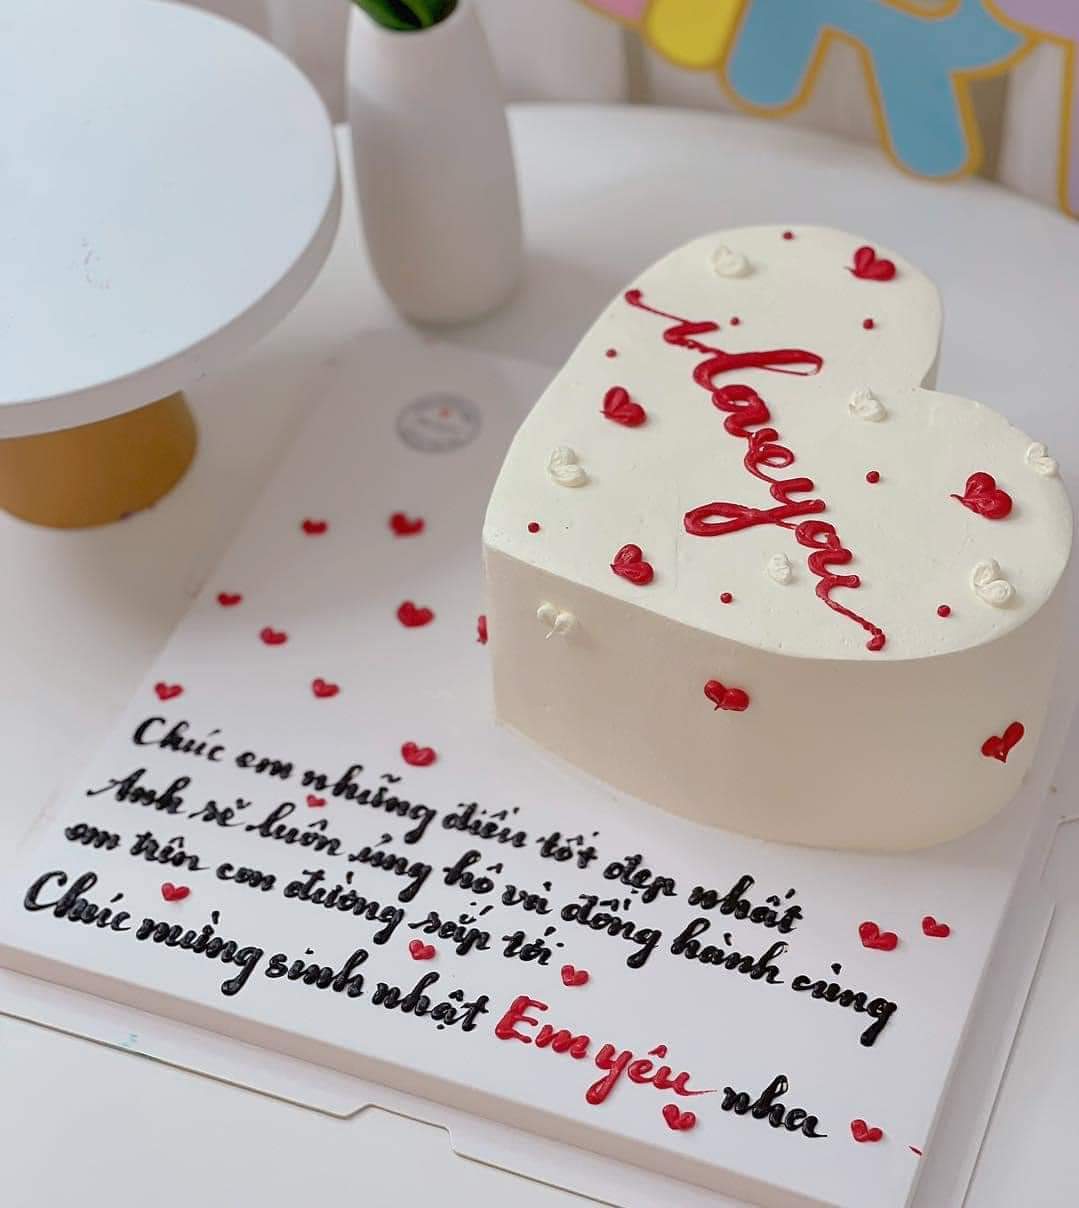 i love you
Chúc em những điều tốt đẹp nhất
Anh sẽ luôn ủng hộ và đồng hành cùng
em trên con đường sắp tới
Chúc mừng sinh nhật Em yêu nha